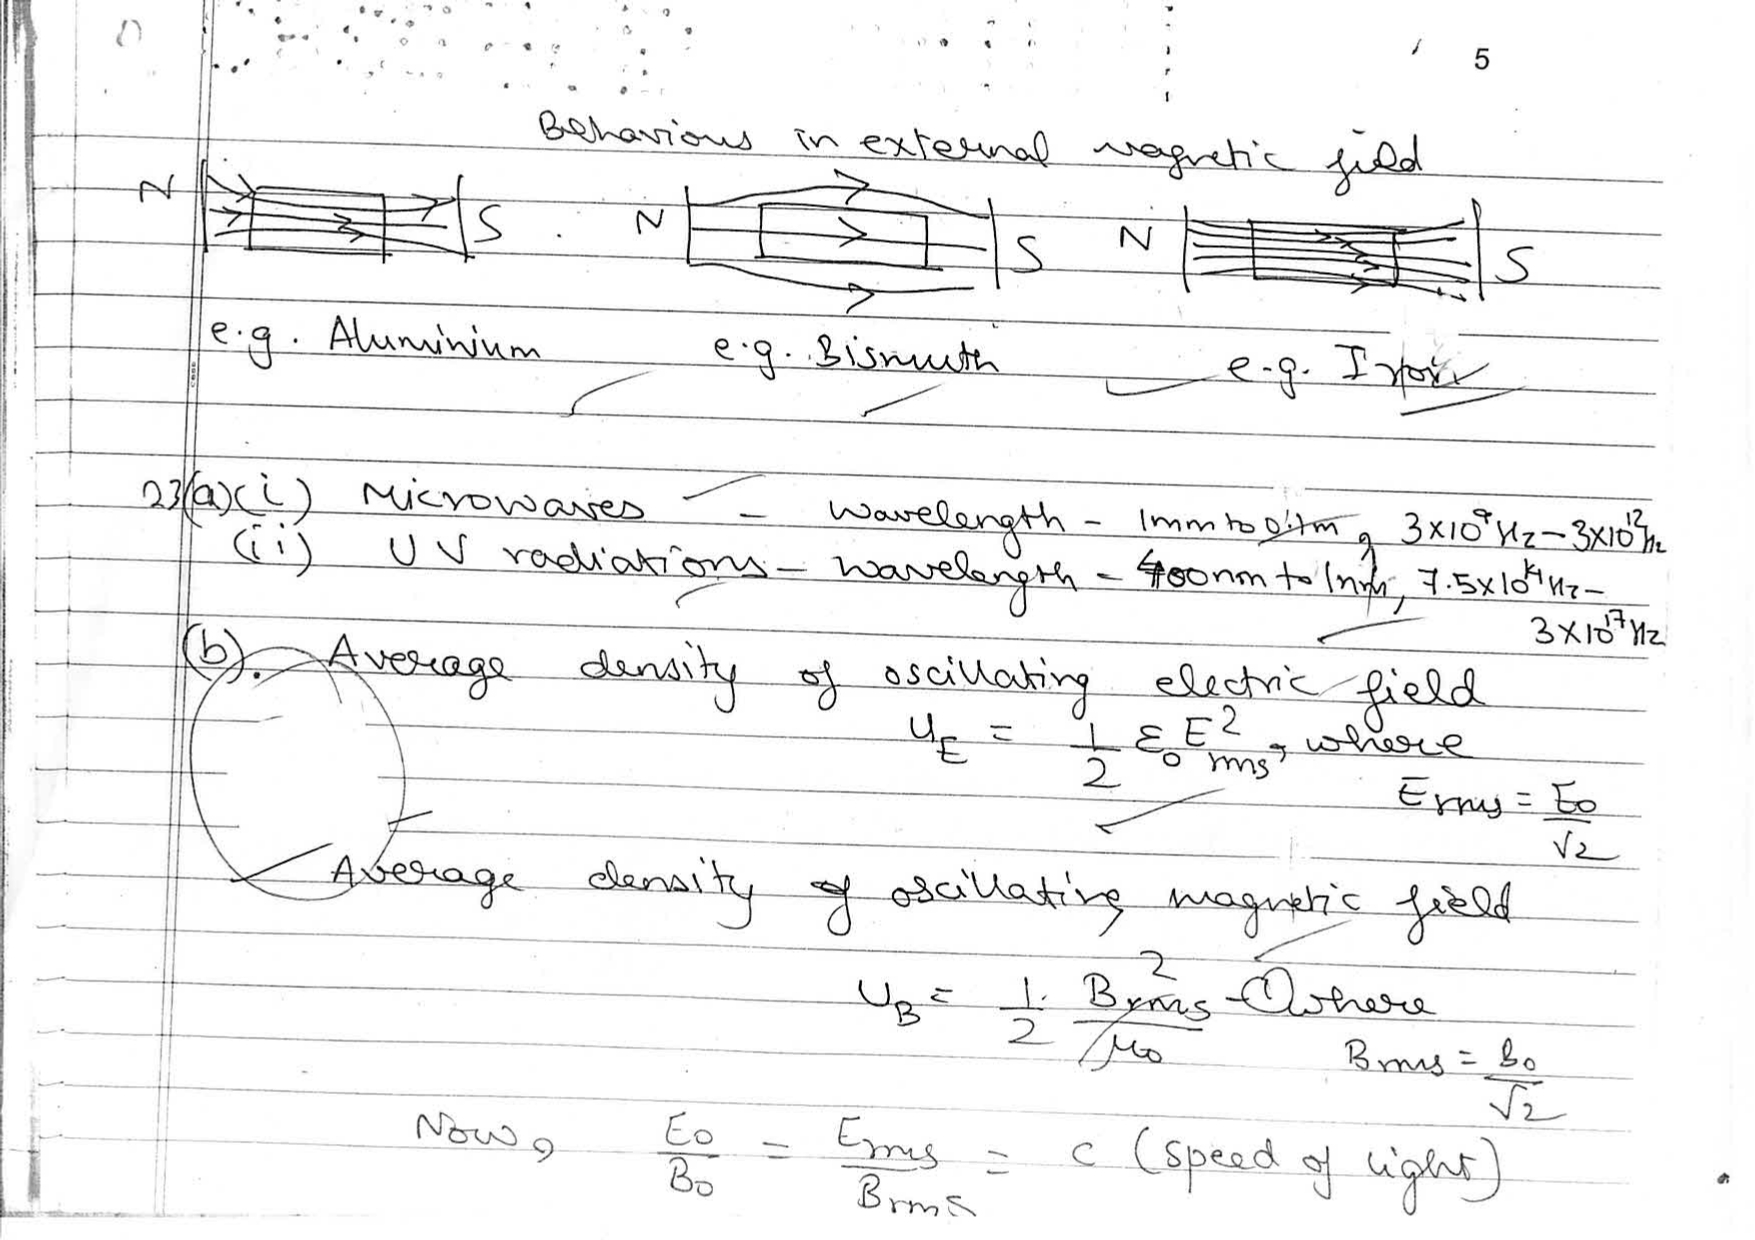 5
Behaviours in external magnetic field
N S N S N S
e.g. Aluminium e.g. Bismuth e.g. Iron
23(a)(i) Microwaves - wavelength - 1mm to 0.1m, 3×10⁹Hz-3×10¹²Hz
(ii) UV radiations - wavelength - 400nm to 1nm, 7.5×10¹⁴Hz-
3×10¹⁷Hz
(b). Average density of oscillating electric field
u_E = 1/2 ε₀E²rms, where
Erms = E₀/√2
Average density of oscillating magnetic field
U_B = 1/2 · B²rms/μ₀ -① where
Brms = B₀/√2
Now, E₀/B₀ = Erms/Brms = c (speed of light)